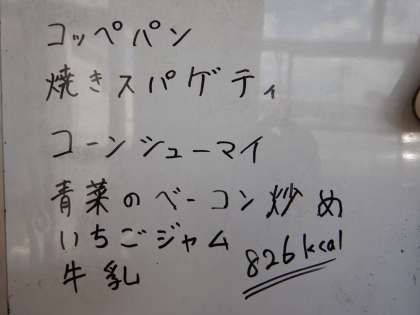 コッペパン
焼きスパゲティ
コーンシューマイ
青菜のベーコン炒め
いちごジャム
牛乳
826kcal